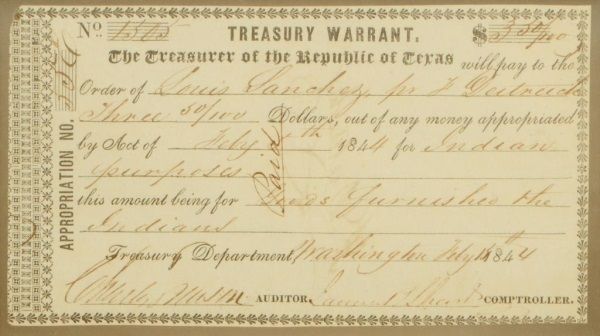 No 1505 TREASURY WARRANT. $3 50/100
The Treasurer of the Republic of Texas will pay to the
Order of Louis Sanchez, pr F Deitreich
Three 50/100 Dollars, out of any money appropriated
by Act of Feby 1844 for Indian
purposes
this amount being for furnished the
Indians
Treasury Department, Washington Feby 1844
Charles Mason AUDITOR. COMPTROLLER.
APPROPRIATION NO.
Paid